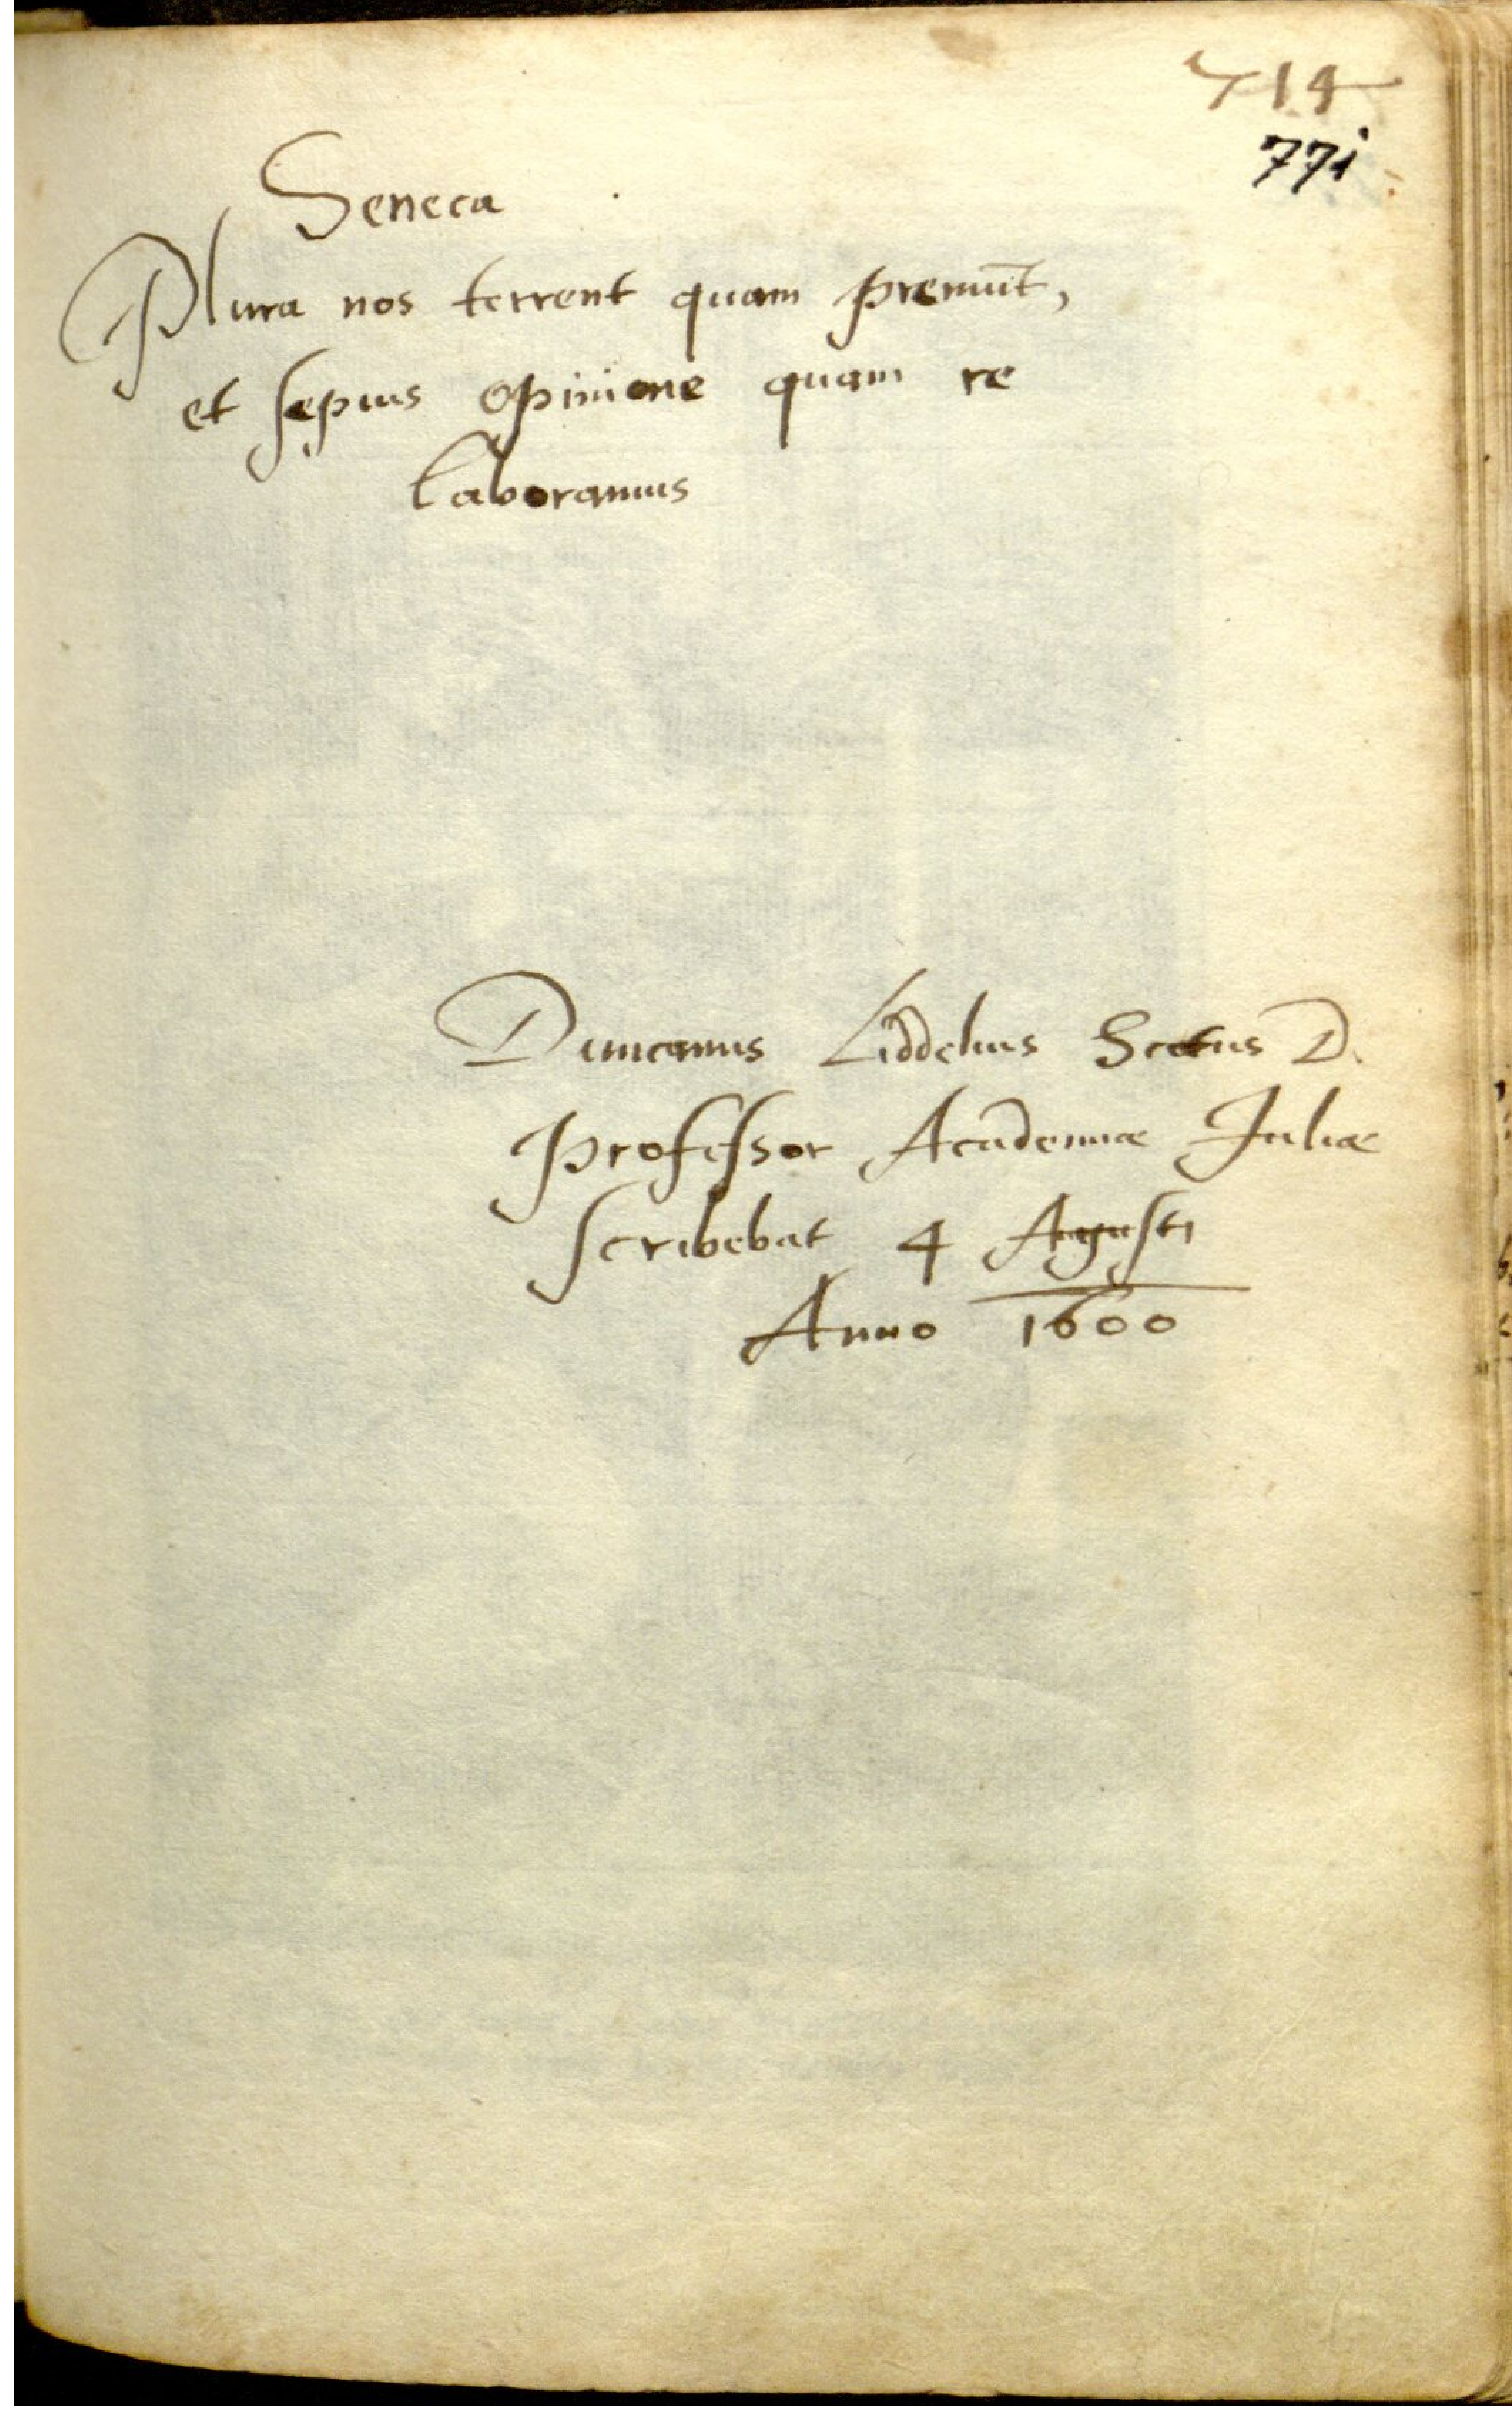 714
771
Seneca
Plura nos terrent quam premūt,
et sepius opinione quam re
laboramus
Duncanus Liddelius Scotus D.
Professor Academiæ Juliæ
scribebat 4 Agusti
Anno 1600